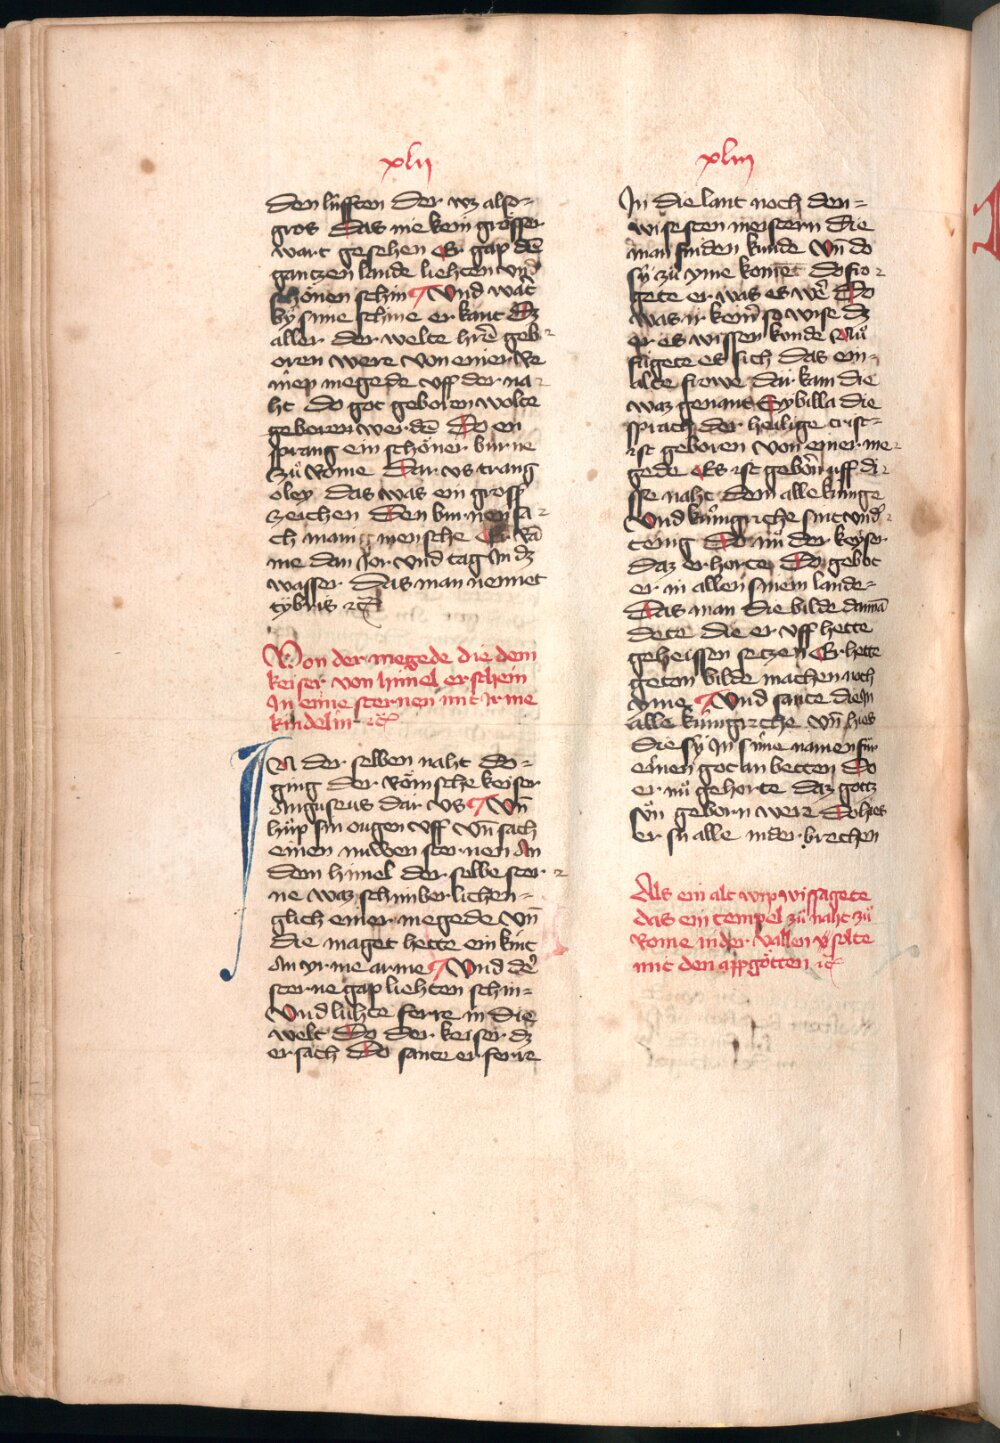 xlii
den lüfften der wz also-
gros Das nie kein grösser
wart gesehen Er gap dē
gantzen lande liehten vnd
schönen schin Vnd wac
by sime schine er kant dz
aller der welte hrē geb-
oren were von einer re
inen megede vff der na-
ht do got geboren wolte
geboren werdē Do en
sprang ein schöner burne
zů Rome Dar vs trang
oley das was ein gross
zeichen Den burnen sa-
ch manig mensche Er Rā
ne den Jor vnd tag In dz
wasser Das man nennet
tybris ꝛc
Von der megede die dem
keiser von himel erschein
In eime sternen mit irme
kindelin ꝛc
IN der selben naht do-
ging der Römsche keiser
Augustus dar vs Vn̄
hüp sin ougen vff vn̄ sach
einen nuwen sternen An
dem himel der selbe ster-
ne waz schinberlichen-
glich einer megede vn̄
die maget hette ein kint
An yrme arme Vnd der
sterne gap liehten schin-
Vnd lühte ferre in die
welt Do der keiser dz
ersach Do sante er ferre
xliii
In die lant noch den-
wisesten meistern die
man finden kunde Vn̄ do
sy zů yme koment do fro-
gete er was es wē Do
was ir kein so wise dz
er es wissen konde Nů
fůgete es sich das ein-
alte frowe dar kam die
waz genant Sybilla die
sprach der heilige crist-
ist geboren von einer me-
gede Es ist geborn uff di-
sse naht dem alle künige
Vnd künigriche sint vnd-
tenig Do nů der keyser
daz erhorte Do gebot
er in allen sinem lande-
Das man die bilde dannā
dete die er vff hette
geheissen setzen Er hette
geton bilde machen noch
yme Vnd sante die In
alle künigriche vn̄ hies
die sy In sime namen für
einen got an betten Do
er nů gehorte daz gottz
sůn geborn were Do hies
er sü alle nider brechen
Als ein alt wip wissagete
das ein tempel zů naht zů
Rome nider vallen solte
mit den appgötten ꝛc